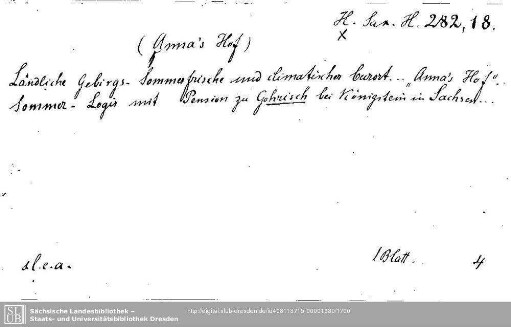 H. Sax. H. 282, 18.
x
(Anna's Hof)
Ländliche Gebirgs- Sommerfrische und climatischer Curort... „Anna's Hof"..
Sommer-Logis mit Pension zu Gohrisch bei Königstein in Sachsen...
s.l.e.a.
1 Blatt.
4
SLUB
Sächsische Landesbibliothek –
Staats- und Universitätsbibliothek Dresden